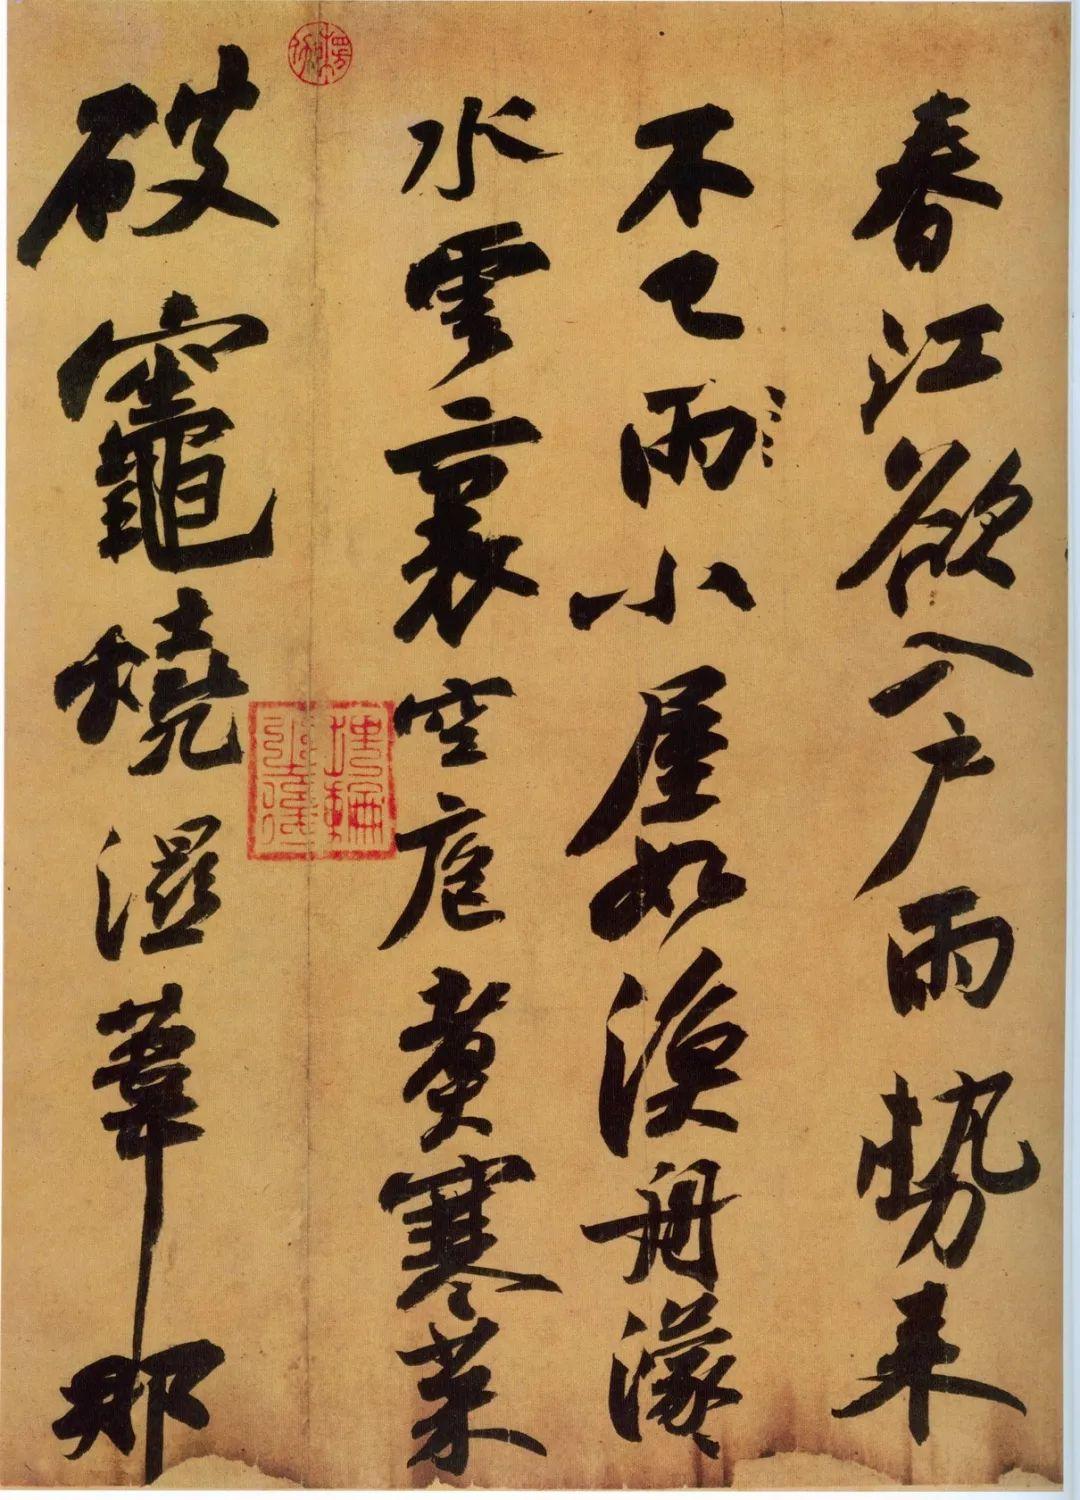 春江欲入户雨勢来
不已雨小屋如漁舟濛〻
水雲裏空庖煑寒菜
破竈燒濕葦那